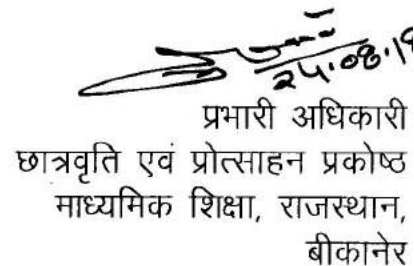 24.08.18
प्रभारी अधिकारी
छात्रवृति एवं प्रोत्साहन प्रकोष्ठ
माध्यमिक शिक्षा, राजस्थान,
बीकानेर